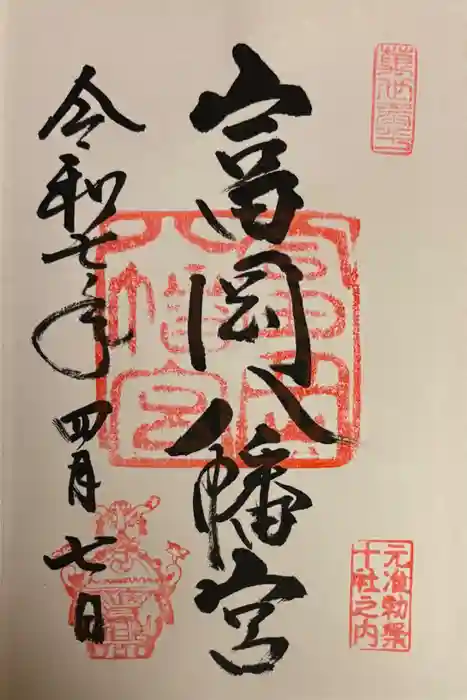 富岡八幡宮
元准勅祭
十社之内
富岡
八幡宮
令和七年四月七日